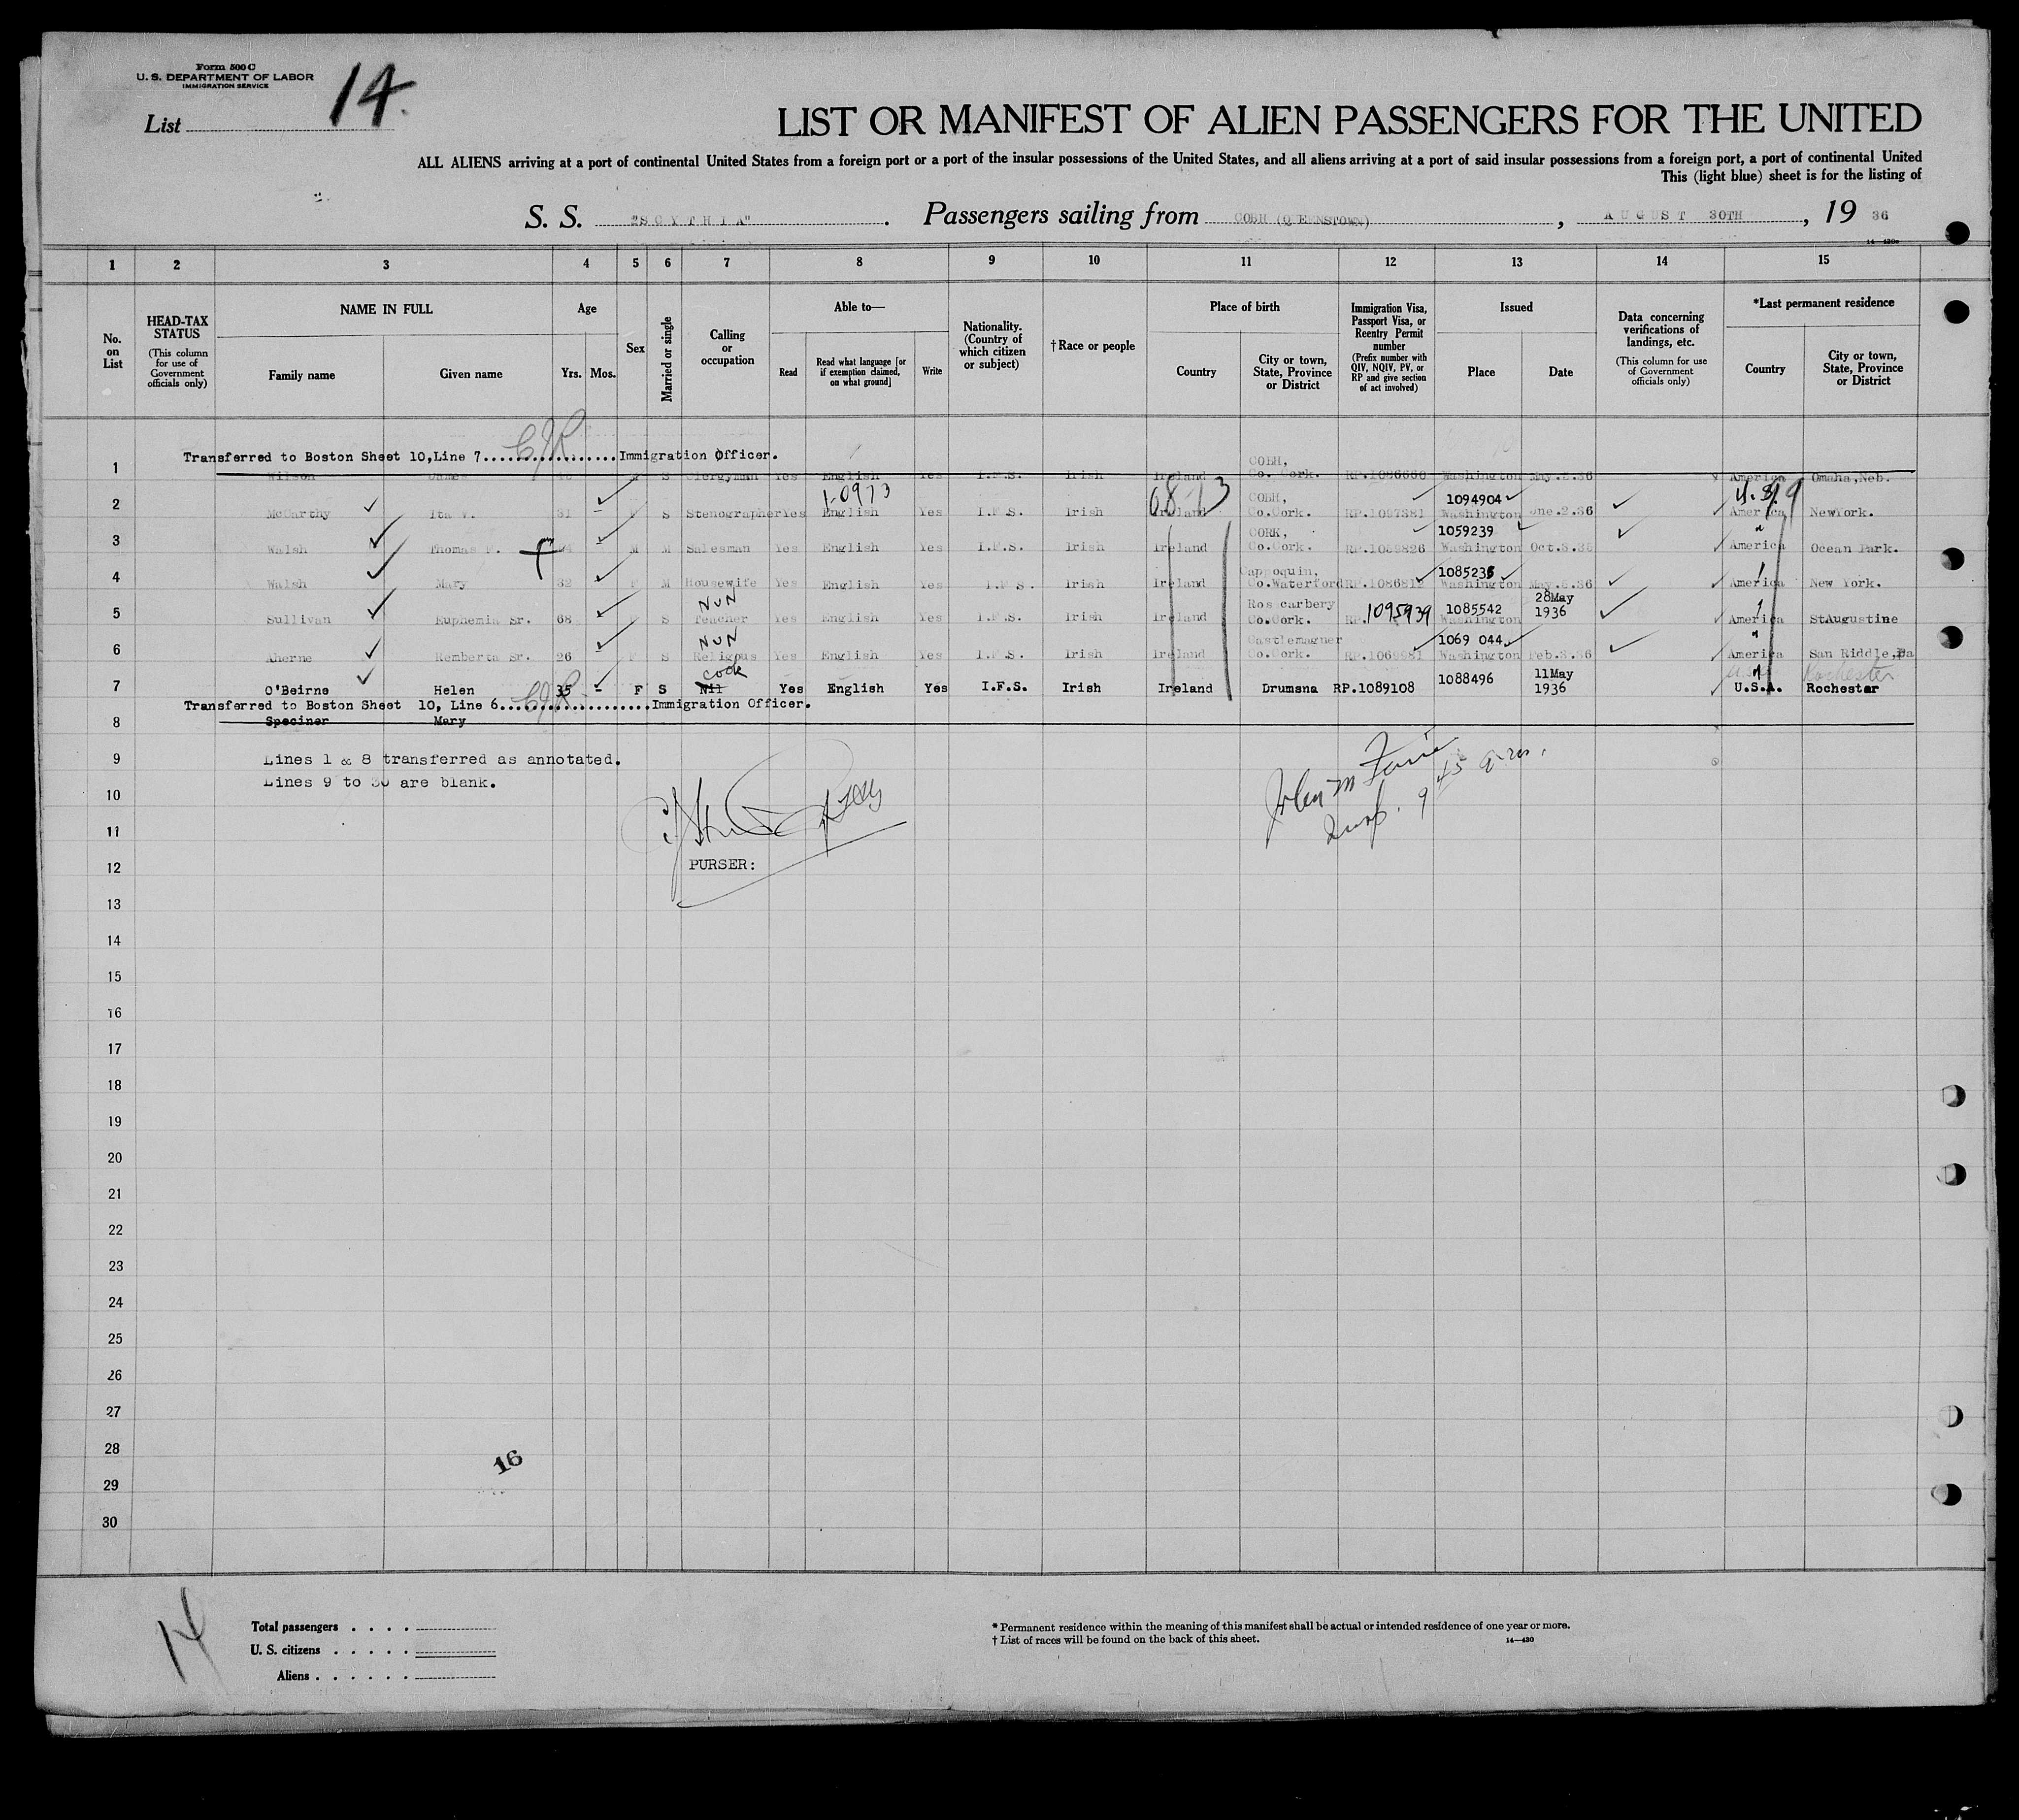 Form 500 C
U. S. DEPARTMENT OF LABOR
IMMIGRATION SERVICE
List 14.
LIST OR MANIFEST OF ALIEN PASSENGERS FOR THE UNITED
ALL ALIENS arriving at a port of continental United States from a foreign port or a port of the insular possessions of the United States, and all aliens arriving at a port of said insular possessions from a foreign port, a port of continental United
This (light blue) sheet is for the listing of
S. S. "SCYTHIA". Passengers sailing from COBH (QUEENSTOWN), AUGUST 30TH, 19 36
1 2 3 4 5 6 7 8 9 10 11 12 13 14 15
No. on List
HEAD-TAX STATUS (This column for use of Government officials only)
NAME IN FULL Family name Given name
Age Yrs. Mos.
Sex
Married or single
Calling or occupation
Able to— Read Read what language [or if exemption claimed, on what ground] Write
Nationality. (Country of which citizen or subject)
†Race or people
Place of birth Country City or town, State, Province or District
Immigration Visa, Passport Visa, or Reentry Permit number (Prefix number with QIV, NQIV, PV, or RP and give section of act involved)
Issued Place Date
Data concerning verifications of landings, etc. (This column for use of Government officials only)
*Last permanent residence Country City or town, State, Province or District
Transferred to Boston Sheet 10,Line 7 Immigration Officer.
1 Wilson James S Clergyman Yes English Yes I.F.S. Irish Ireland COBH, Co. Cork. RP.1086660 Washington May.8.36 America Omaha,Neb.
2 McCarthy Ita 31 S Stenographer Yes English Yes I.F.S. Irish Ireland COBH, Co.Cork. RP.1097381 1094904 Washington une.2.36 America NewYork.
3 Walsh Thomas M M Salesman Yes English Yes I.F.S. Irish Ireland CORK, Co.Cork. 1059239 Washington America Ocean Park.
4 Walsh Mary 32 F M Housewife Yes English Yes I.F.S. Irish Ireland Cappoquin, Co.Waterford RP.1086812 1085235 Washington America New York.
5 Sullivan Euphemia Sr. 68 S NUN Teacher Yes English Yes I.F.S. Irish Ireland Ros carbery Co.Cork. RP. 1095939 1085542 Washington 28May 1936 America StAugustine
6 Aherne Remberta Sr. 26 F S NUN Religous Yes English Yes I.F.S. Irish Ireland Castlemagner Co.Cork. RP.1069981 1069 044 Washington Feb.3.36 America San Riddle,Pa
7 O'Beirne Helen 35 - F S cook Nil Yes English Yes I.F.S. Irish Ireland Drumsna RP.1089108 1088496 11May 1936 U.S.A. Rochester
Transferred to Boston Sheet 10, Line 6 Immigration Officer.
8 Speciner Mary
9 Lines 1 & 8 transferred as annotated.
Lines 9 to 30 are blank.
10
11
12 PURSER:
13
14
15
16
17
18
19
20
21
22
23
24
25
26
27
28
16
29
30
14
Total passengers
U. S. citizens
Aliens
* Permanent residence within the meaning of this manifest shall be actual or intended residence of one year or more.
† List of races will be found on the back of this sheet.
14—430